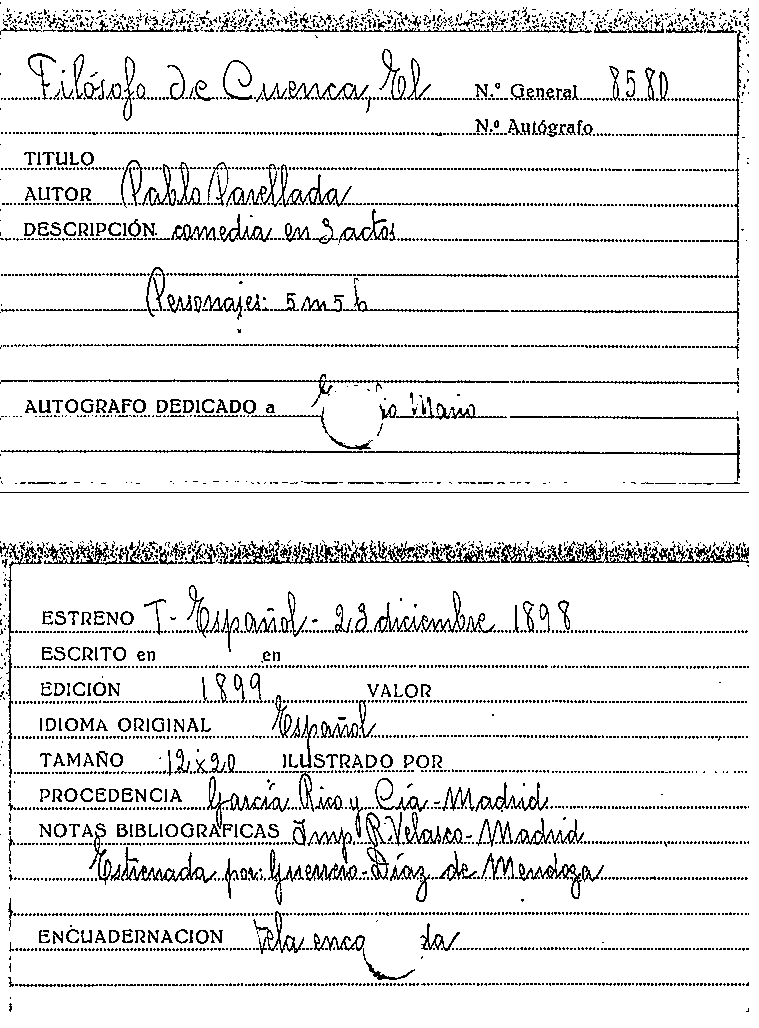 Filósofo de Cuenca, El N.º General 8580
N.º Autógrafo
TITULO
AUTOR Pablo Parellada
DESCRIPCIÓN comedia en 3 actos
Personajes: 5 m 5 h
AUTOGRAFO DEDICADO a Mario
ESTRENO T- Español - 23 diciembre 1898
ESCRITO en en
EDICIÓN 1899 VALOR
IDIOMA ORIGINAL Español
TAMAÑO 12x20 ILUSTRADO POR
PROCEDENCIA García Rico y Cía - Madrid
NOTAS BIBLIOGRAFICAS Imp R Velasco - Madrid
Estrenada por: Guerrero - Díaz de Mendoza
ENCUADERNACION Tela